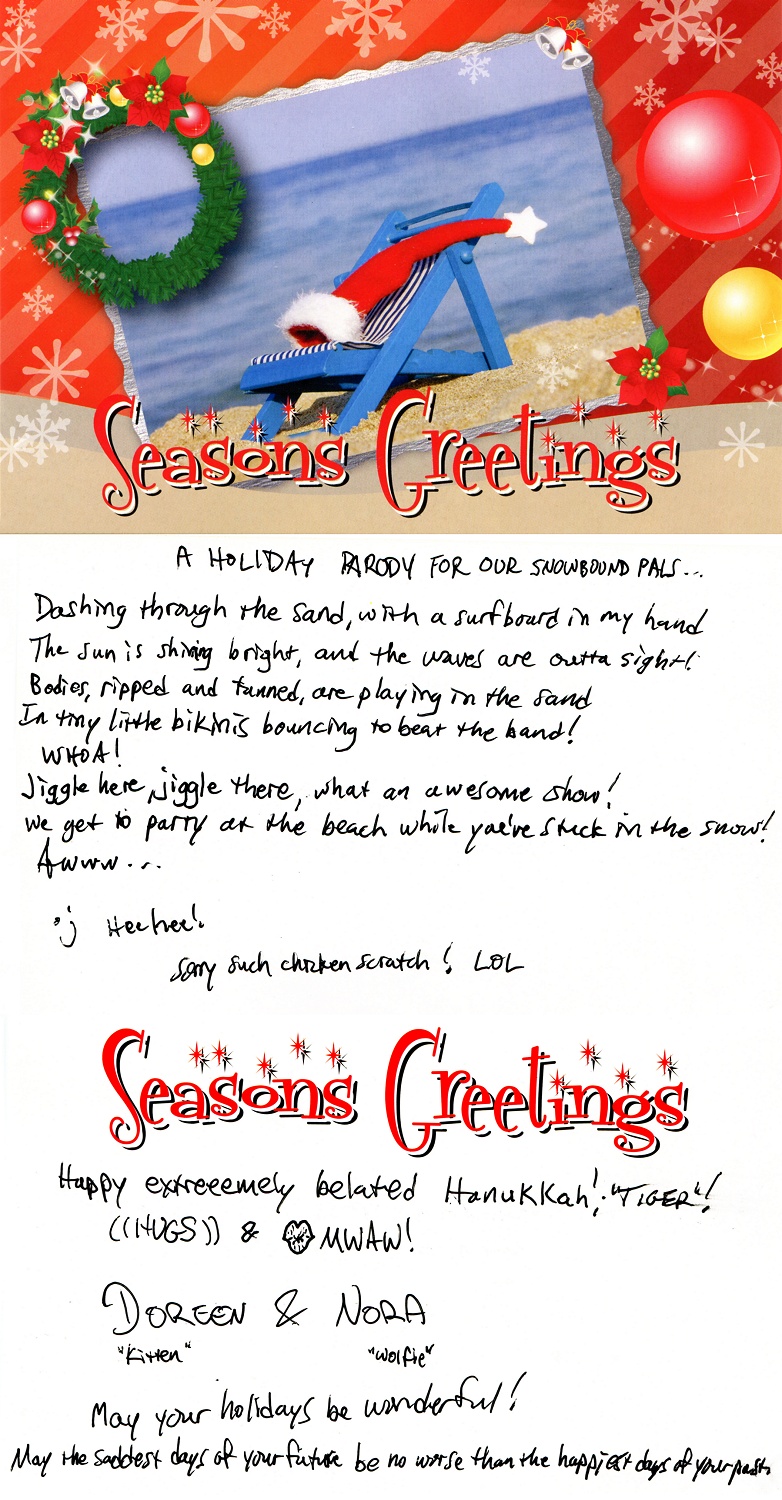 Seasons Greetings
A HOLIDAY PARODY FOR OUR SNOWBOUND PALS...
Dashing through the sand, with a surfboard in my hand
The sun is shining bright, and the waves are outta sight!
Bodies, ripped and tanned, are playing in the sand
In tiny little bikinis bouncing to beat the band!
WHOA!
Jiggle here, jiggle there, what an awesome show!
We get to party at the beach while you're stuck in the snow!
Awww...
;) Hee hee!
Sorry such chicken scratch! LOL
Seasons Greetings
Happy extreeemely belated Hanukkah, "TIGER"!
((HUGS)) & MWAW!
DOREEN & NORA
"Kitten" "Wolfie"
May your holidays be wonderful!
May the saddest days of your future be no worse than the happiest days of your past.